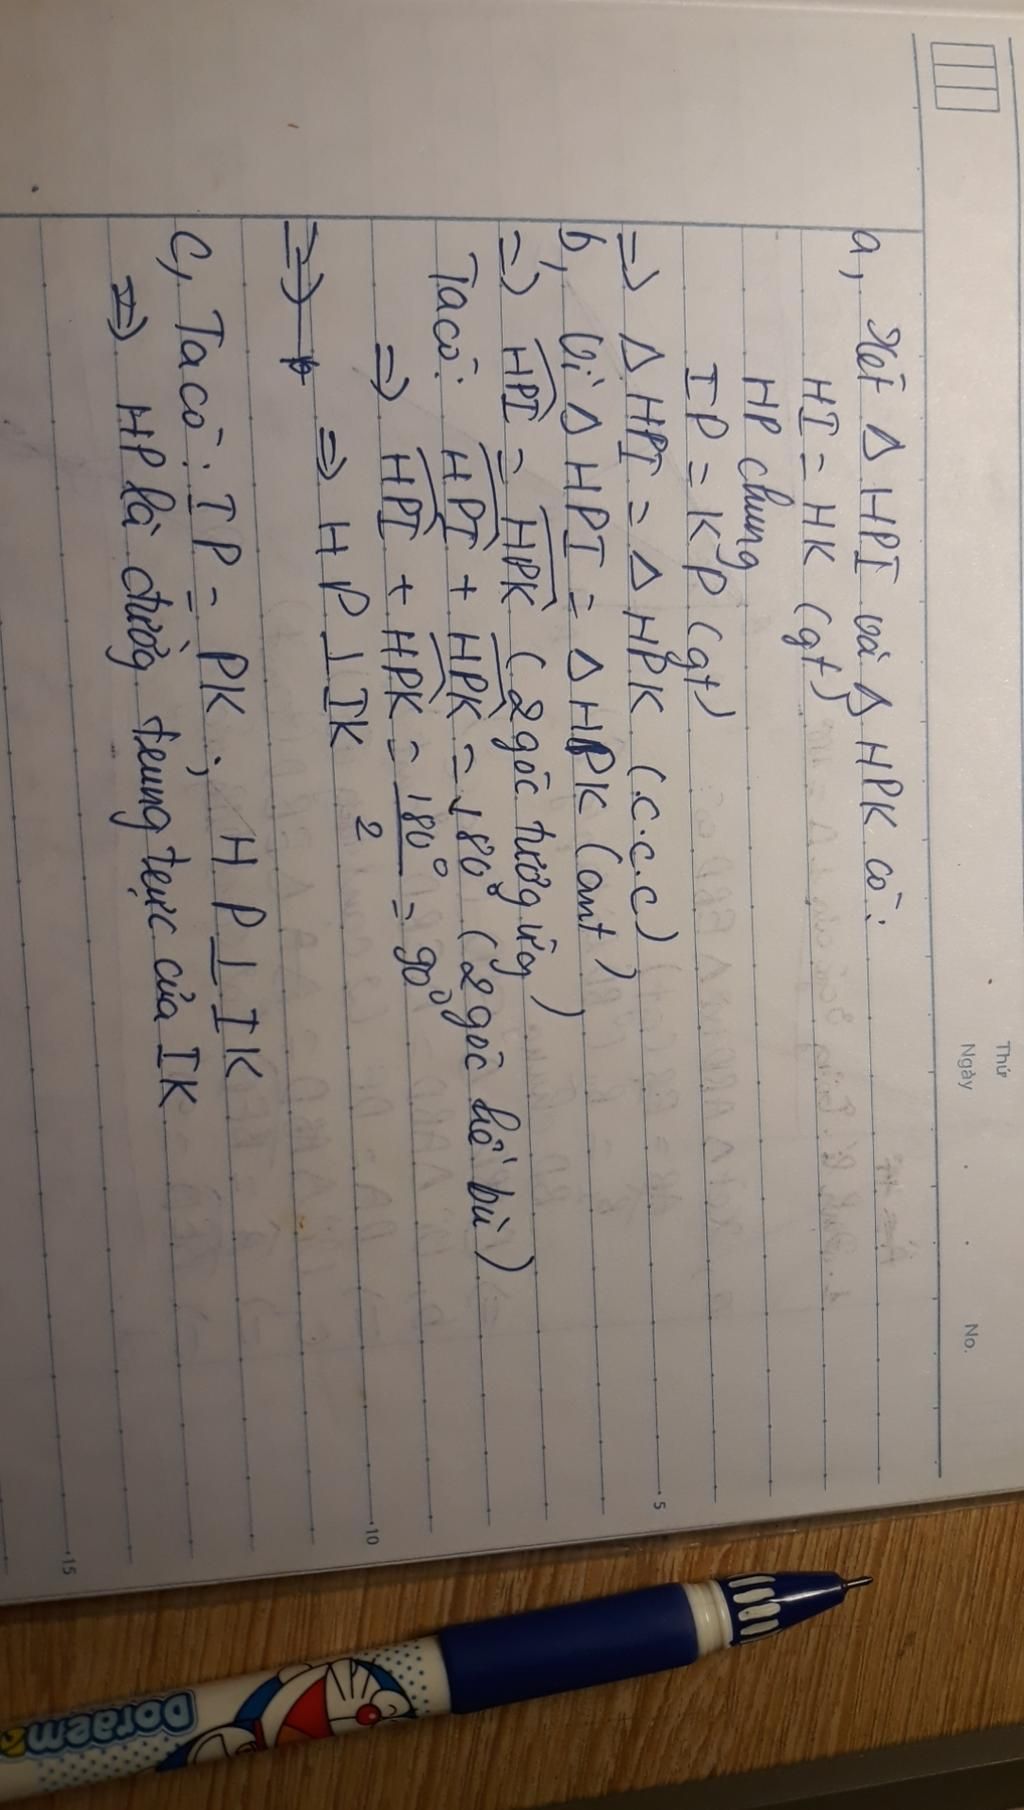 Thứ
Ngày
No.
a, Xét Δ HPI và Δ HPK có:
HI = HK (gt)
HP chung
IP = KP (gt)
=> Δ HPI = Δ HPK (c.c.c)
5
b, Vì Δ HPI = Δ HPK (cmt)
=> HPI = HPK (2 góc tương ứng)
Ta có: HPI + HPK = 180° (2 góc kề bù)
=> HPI + HPK = 180°/2 = 90°
10
=> HP ⊥ IK
c, Ta có: IP = PK; HP ⊥ IK
=> HP là đường trung trực của IK
15
Doraem